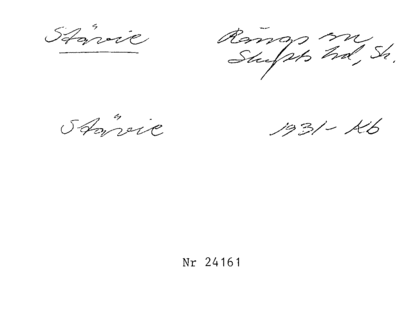 Stävie Rängs sn
Skytts hd, Sk.
Stävie 1931- Kb
Nr 24161